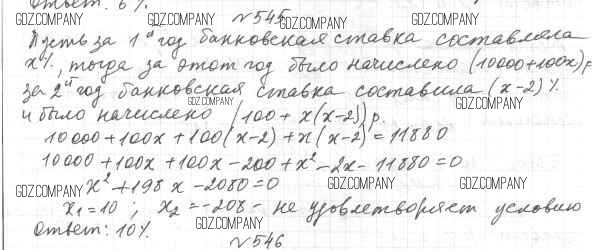 Ответ: 6%
GDZ.COMPANY GDZ.COMPANY GDZ.COMPANY
№545
GDZ.COMPANY
Пусть за 1ый год банковская ставка составляла
x%, тогда за этот год было начислено (10000+100x)р
за 2ый год банковская ставка составила (x-2)%
GDZ.COMPANY GDZ.COMPANY
и было начислено (100+x(x-2))р.
10000+100x+100(x-2)+x(x-2)=11880
10000+100x+100x-200+x²-2x-11880=0
GDZ.COMPANY GDZ.COMPANY GDZ.COMPANY GDZ.COMPANY
x²+198x-2080=0
x₁=10; x₂=-208- не удовлетворяет условию
GDZ.COMPANY
Ответ: 10%.
№546